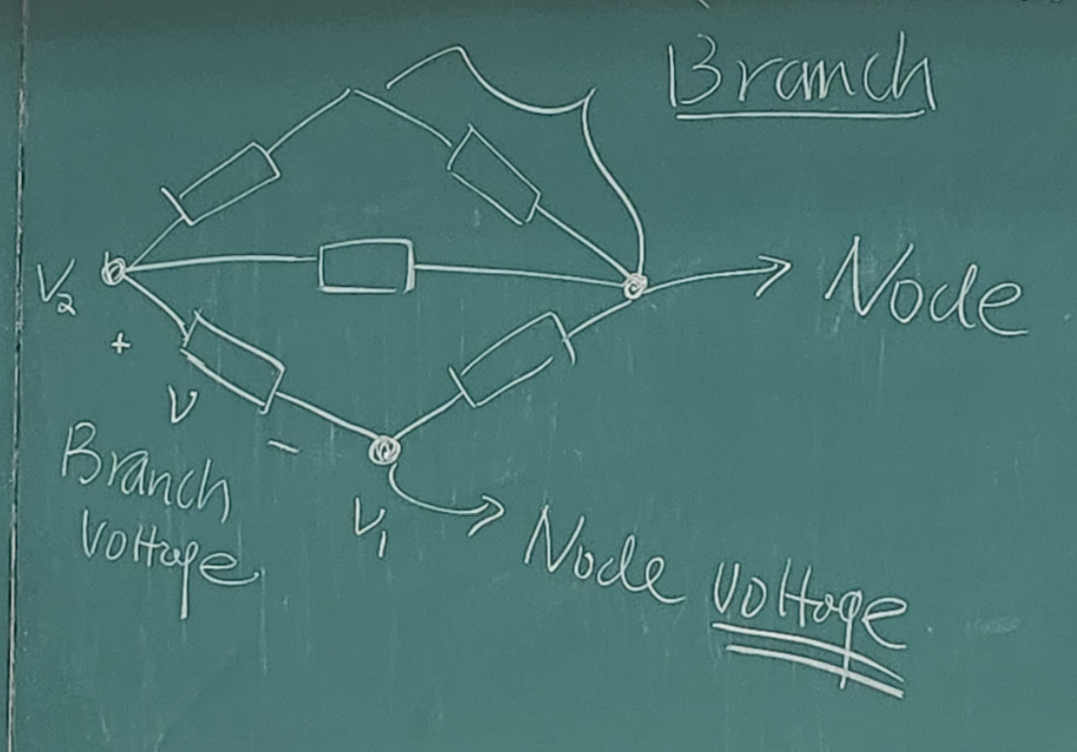 Branch
Node
V₂
+
v
−
Branch
Voltage
V₁
Node Voltage